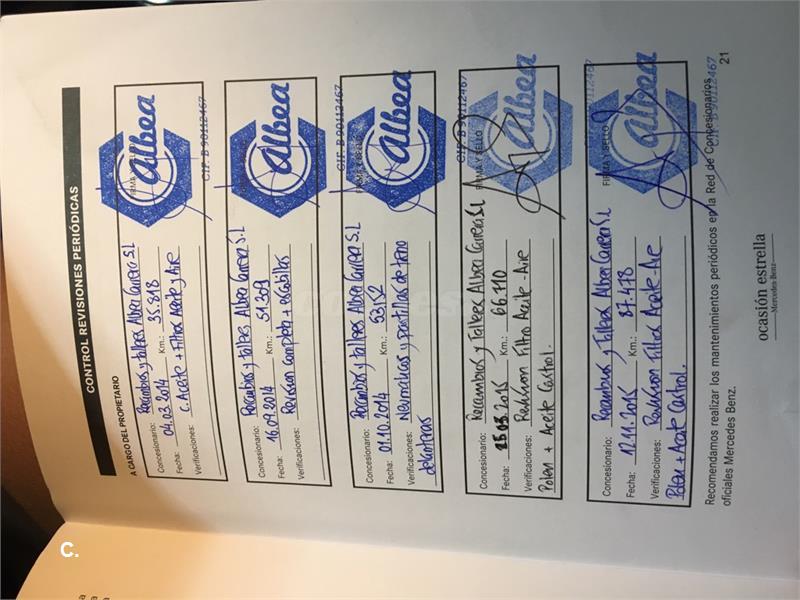 CONTROL REVISIONES PERIÓDICAS
A CARGO DEL PROPIETARIO
Concesionario: Recambios y Talleres Albea Carrera S.L
Fecha: 04.03.2014 Km.: 35.818
Verificaciones: C. Aceite + Filtros Aceite y Aire
FIRMA Y SELLO
albea
CIF. B 90112467
Concesionario: Recambios y Talleres Albea Carrera S.L
Fecha: 16.09.2014 Km.: 51.309
Verificaciones: Revision completa + escobillas
albea
CIF. B 90112467
Concesionario: Recambios y Talleres Albea Carrera S.L
Fecha: 01.10.2014 Km.: 53.152
Verificaciones: Neumaticos y pastillas de freno
delanteras
albea
CIF. B 90112467
Concesionario: Recambios y Talleres Albea Carrera S.L
Fecha: 25.03.2015 Km.: 66.110
Verificaciones: Revision Filtro Aceite - Aire
Polen + Aceite Castrol.
FIRMA Y SELLO
albea
CIF. B 90112467
Concesionario: Recambios y Talleres Albea Carrera S.L
Fecha: 12.11.2015 Km.: 87.478
Verificaciones: Revision Filtros Aceite - Aire
Polen + Aceite Castrol.
FIRMA Y SELLO
albea
CIF. B 90112467
Recomendamos realizar los mantenimientos periódicos en la Red de Concesionarios
oficiales Mercedes Benz.
21
ocasión estrella
Mercedes-Benz
C.